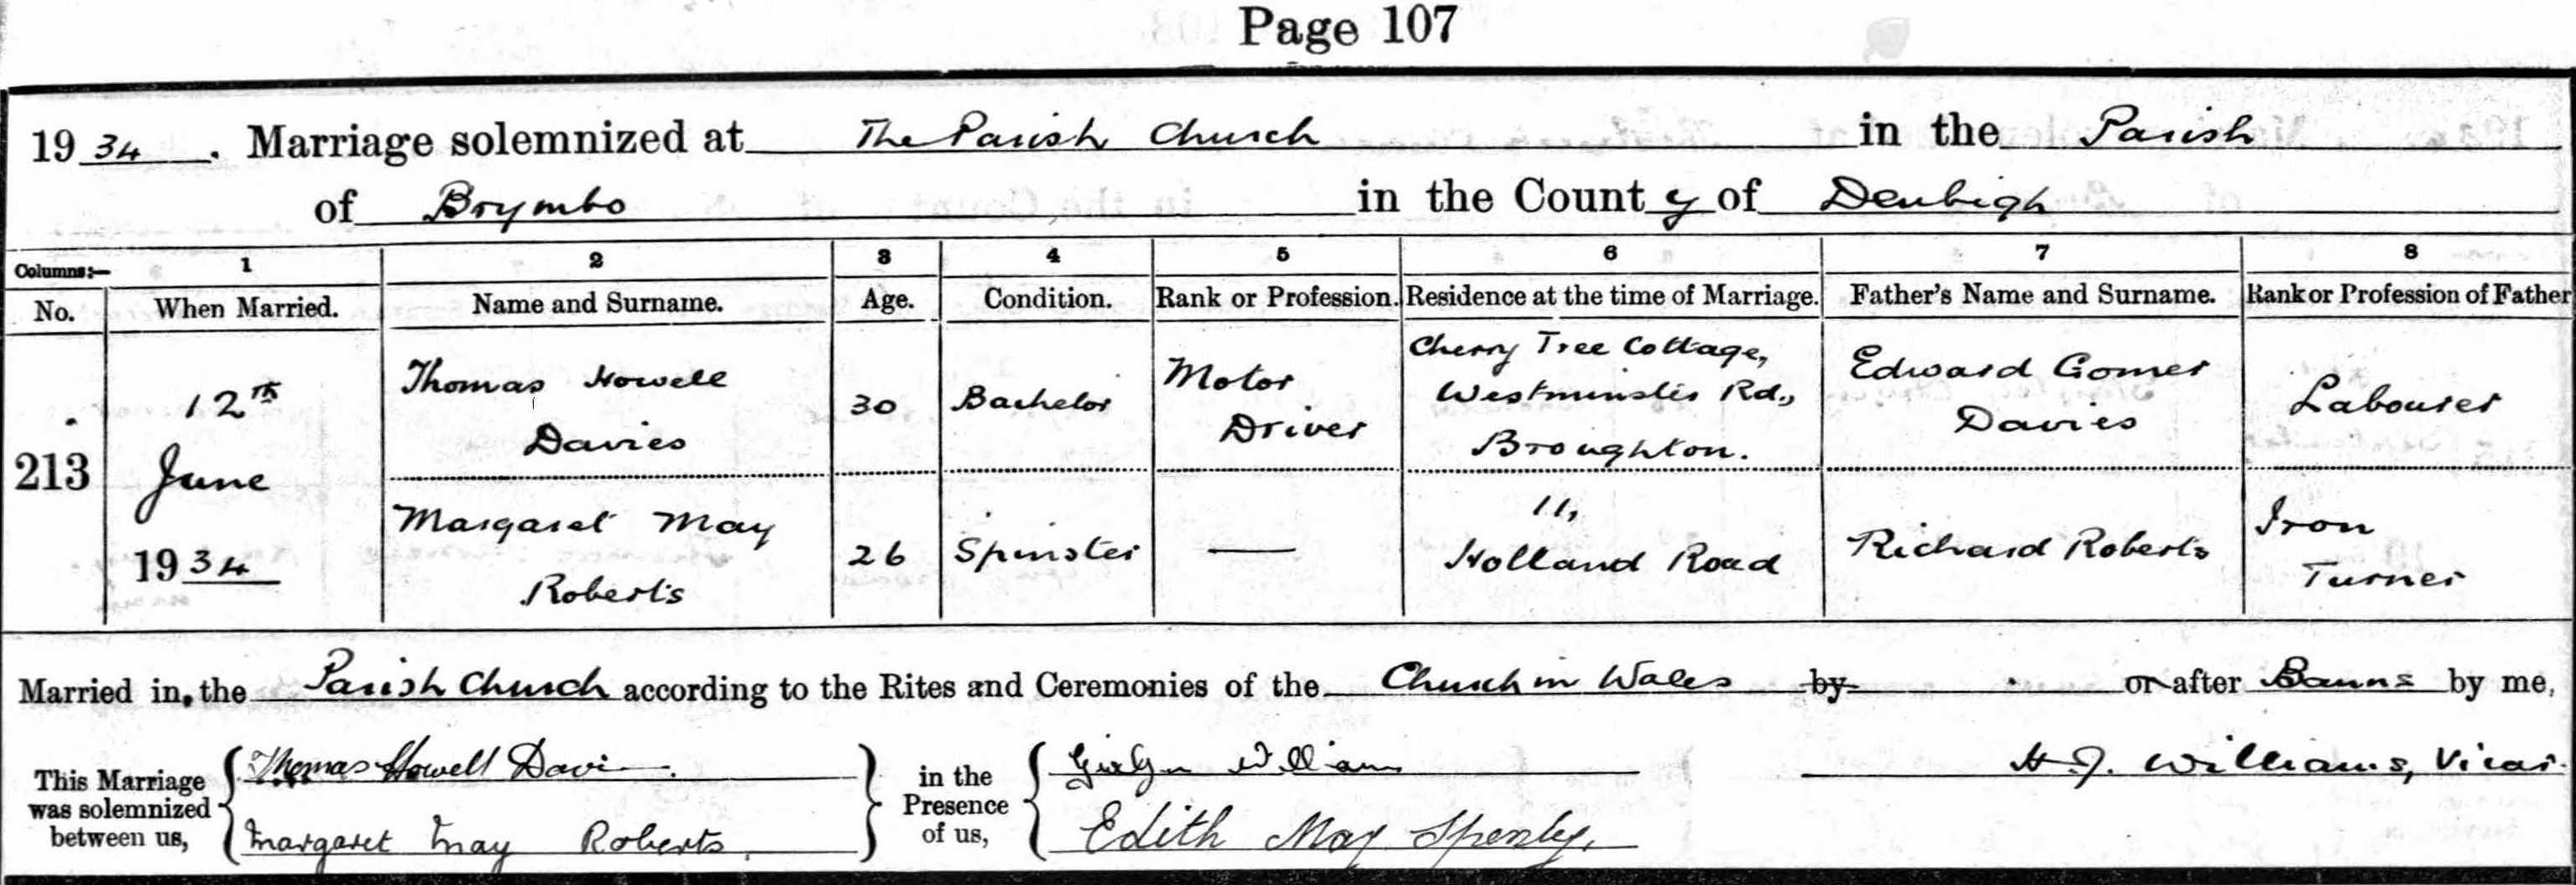 Page 107
1934. Marriage solemnized at The Parish Church in the Parish
of Brymbo in the County of Denbigh
Columns:— 1 2 3 4 5 6 7 8
No. When Married. Name and Surname. Age. Condition. Rank or Profession. Residence at the time of Marriage. Father's Name and Surname. Rank or Profession of Father
213
12th
June
1934
Thomas Howell
Davies
30
Bachelor
Motor
Driver
Cherry Tree Cottage,
Westminster Rd.,
Broughton.
Edward Gomer
Davies
Labourer
Margaret May
Roberts
26
Spinster
—
11,
Holland Road
Richard Roberts
Iron
Turner
Married in the Parish Church according to the Rites and Ceremonies of the Church in Wales by or after Banns by me,
This Marriage
was solemnized
between us,
Thomas Howell Davies.
Margaret May Roberts.
in the
Presence
of us,
Williams
Edith May
H. J. Williams, Vicar.